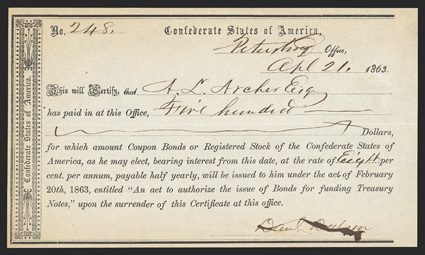 Confederate States of America.
No. 248.
Confederate States of America,
Petersburg Office,
Apl 21, 1863
This will Certify, that A. L. Archer Esq
has paid in at this Office, Five hundred
Dollars,
for which amount Coupon Bonds or Registered Stock of the Confederate States of
America, as he may elect, bearing interest from this date, at the rate of Eight per
cent. per annum, payable half yearly, will be issued to him under the act of February
20th, 1863, entitled "An act to authorize the issue of Bonds for funding Treasury
Notes," upon the surrender of this Certificate at this office.